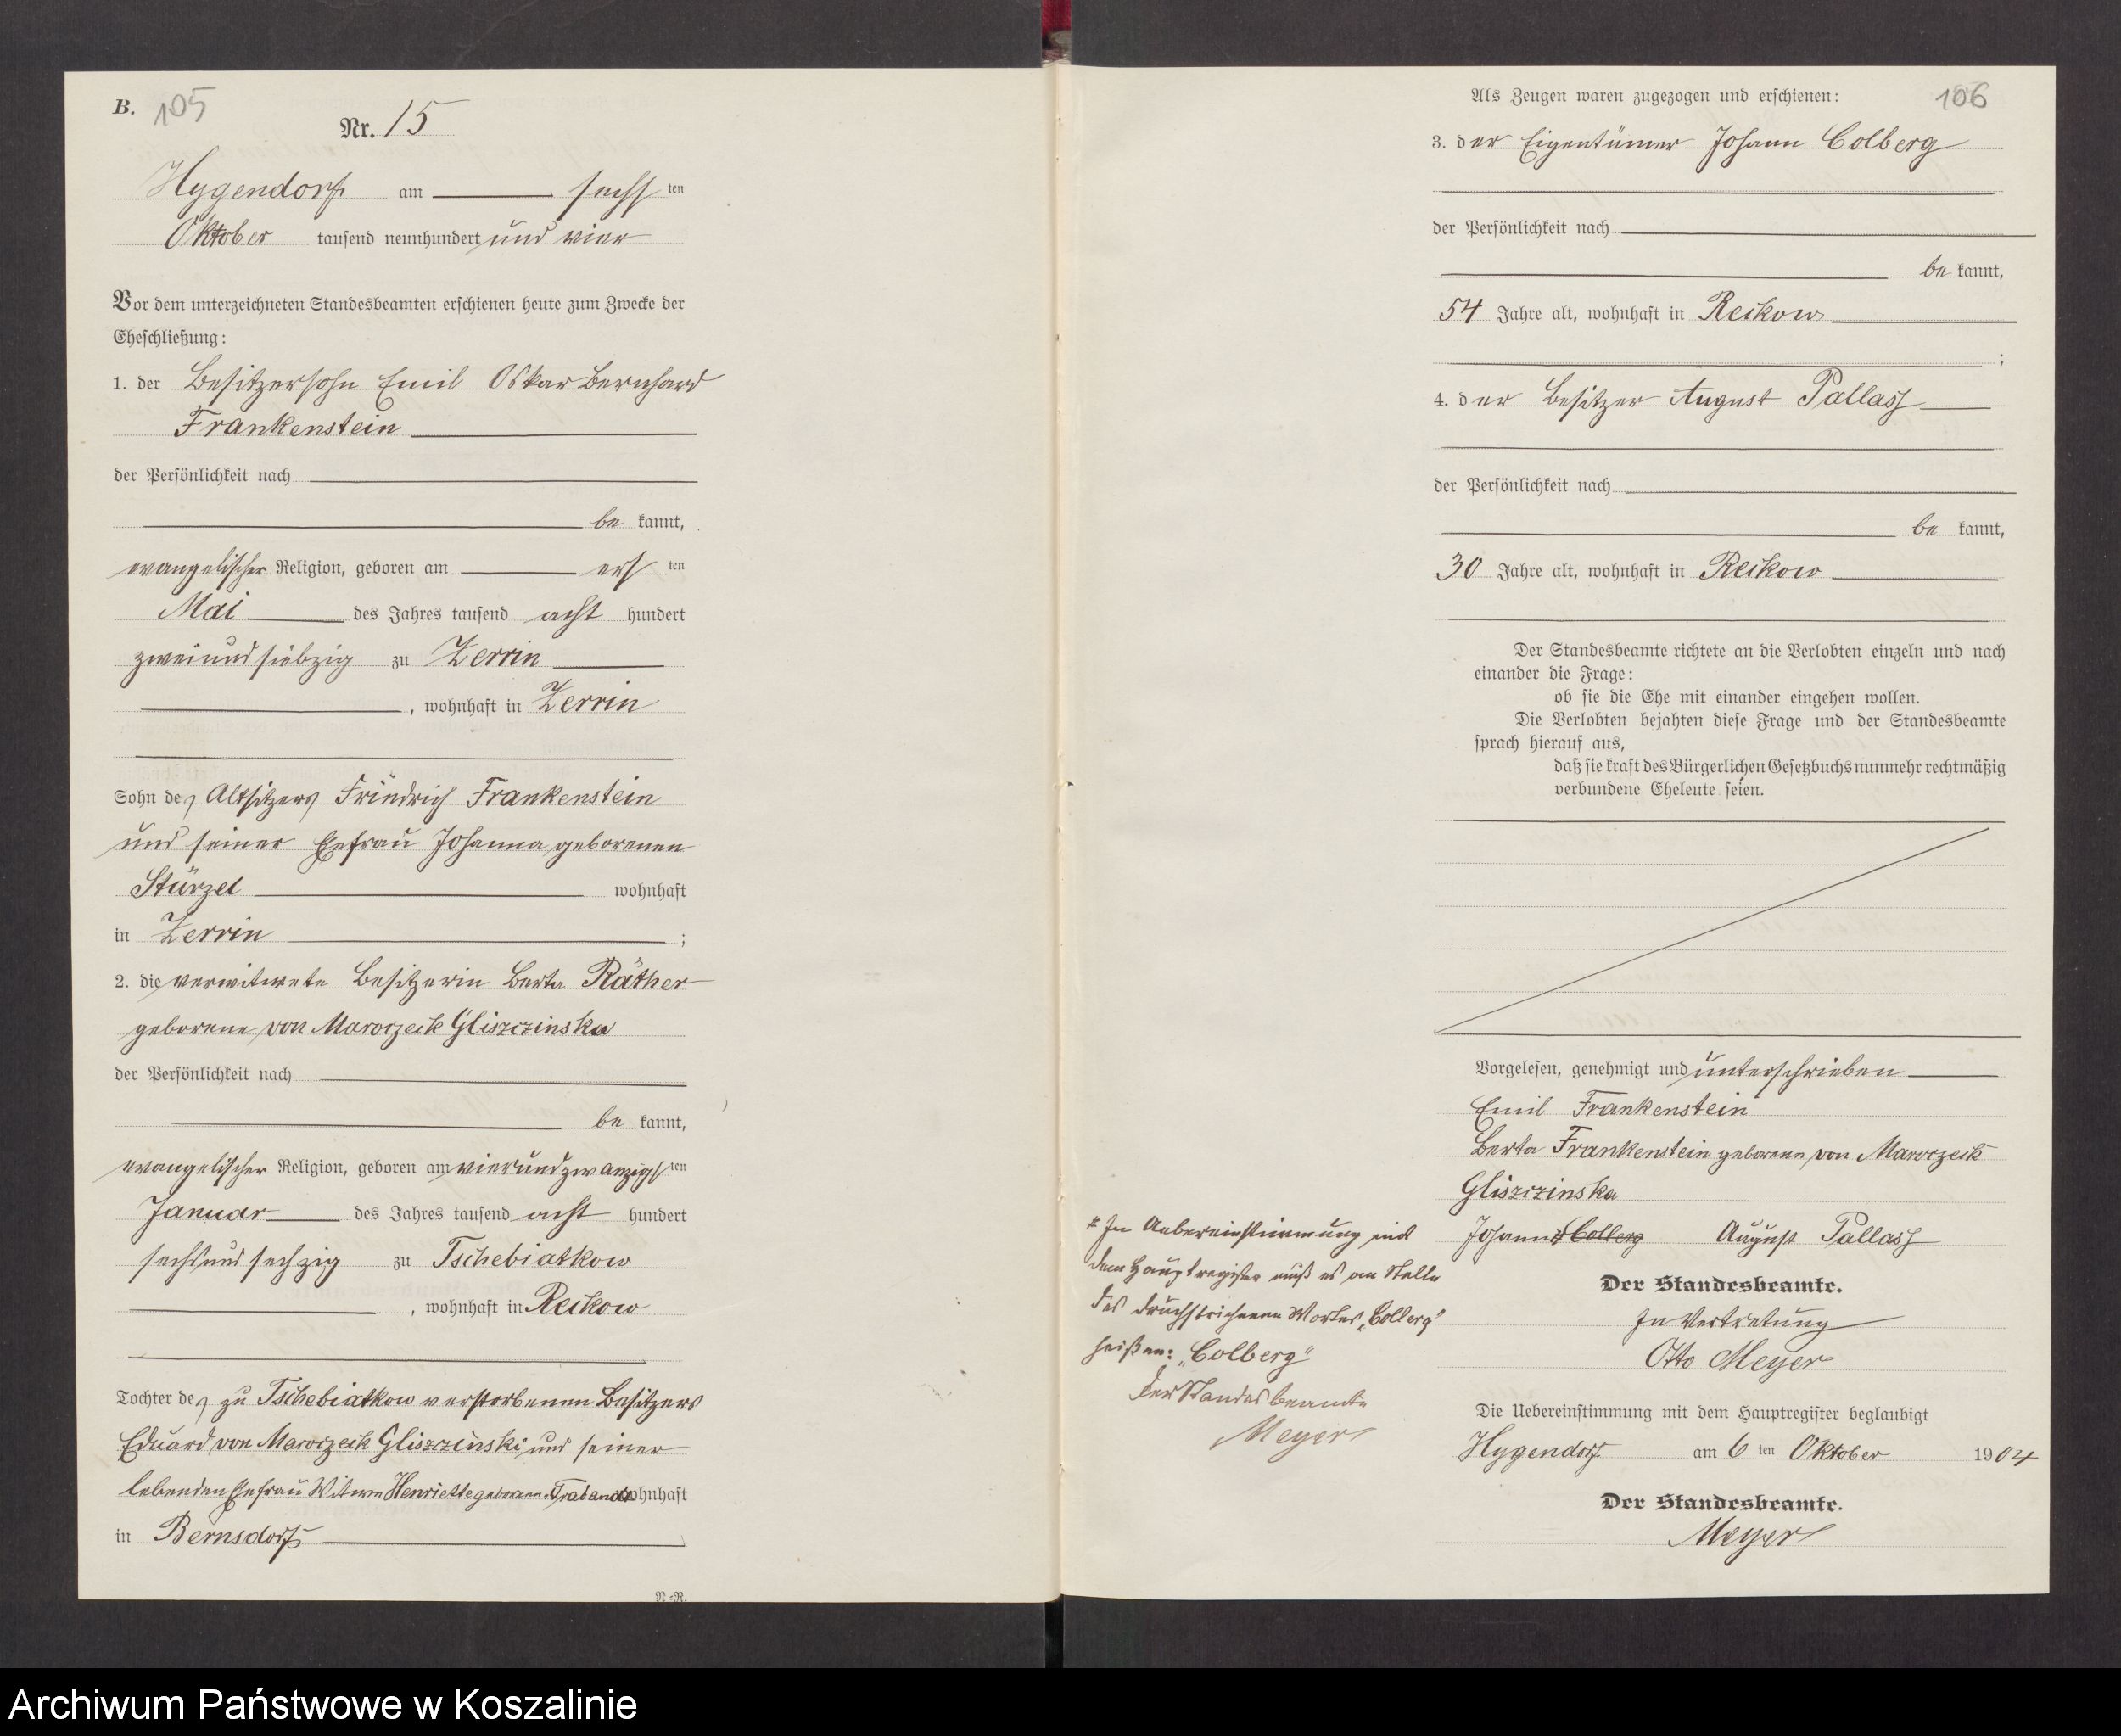 B. 105
Nr. 15
Hygendorf am sechsten
Oktober tausend neunhundert und vier
Vor dem unterzeichneten Standesbeamten erschienen heute zum Zwecke der
Eheschließung:
1. der Besitzersohn Emil Oskar Bernhard
Frankenstein
der Persönlichkeit nach
be kannt,
evangelischer Religion, geboren am ersten
Mai des Jahres tausend acht hundert
zweiundsiebzig zu Zerrin
, wohnhaft in Zerrin
Sohn des Altsitzers Friedrich Frankenstein
und seiner Ehefrau Johanna geborenen
Stürzel wohnhaft
in Zerrin ;
2. die verwitwete Besitzerin Berta Räther
geborene von Maroczeck Gliszczinska
der Persönlichkeit nach
be kannt,
evangelischer Religion, geboren am vierundzwanzigsten
Januar des Jahres tausend acht hundert
sechsundsechzig zu Tschebiatkow
, wohnhaft in Reckow
Tochter des zu Tschebiatkow verstorbenen Besitzers
Eduard von Maroczeck Gliszczinski und seiner
lebenden Ehefrau Witwe Henriette geborenen wohnhaft
in Bernsdorf
N=R.
106
Als Zeugen waren zugezogen und erschienen:
3. der Eigentümer Johann Colberg
der Persönlichkeit nach
be kannt,
54 Jahre alt, wohnhaft in Reckow
;
4. der Besitzer August Pallass
der Persönlichkeit nach
be kannt,
30 Jahre alt, wohnhaft in Reckow
Der Standesbeamte richtete an die Verlobten einzeln und nach
einander die Frage:
ob sie die Ehe mit einander eingehen wollen.
Die Verlobten bejahten diese Frage und der Standesbeamte
sprach hierauf aus,
daß sie kraft des Bürgerlichen Gesetzbuchs nunmehr rechtmäßig
verbundene Eheleute seien.
Vorgelesen, genehmigt und unterschrieben
Emil Frankenstein
Berta Frankenstein geborene von Maroczeck
Gliszczinska
Johann Collerg August Pallass
Der Standesbeamte.
In Vertretung
Otto Meyer
Die Uebereinstimmung mit dem Hauptregister beglaubigt
Hygendorf am 6 ten Oktober 1904
Der Standesbeamte.
Meyer
# In Uebereinstimmung mit
dem Hauptregister muß es an Stelle
des druchstrichenen Wortes „Collerg"
heißen: „Colberg"
Der Standesbeamte
Meyer
Archiwum Państwowe w Koszalinie